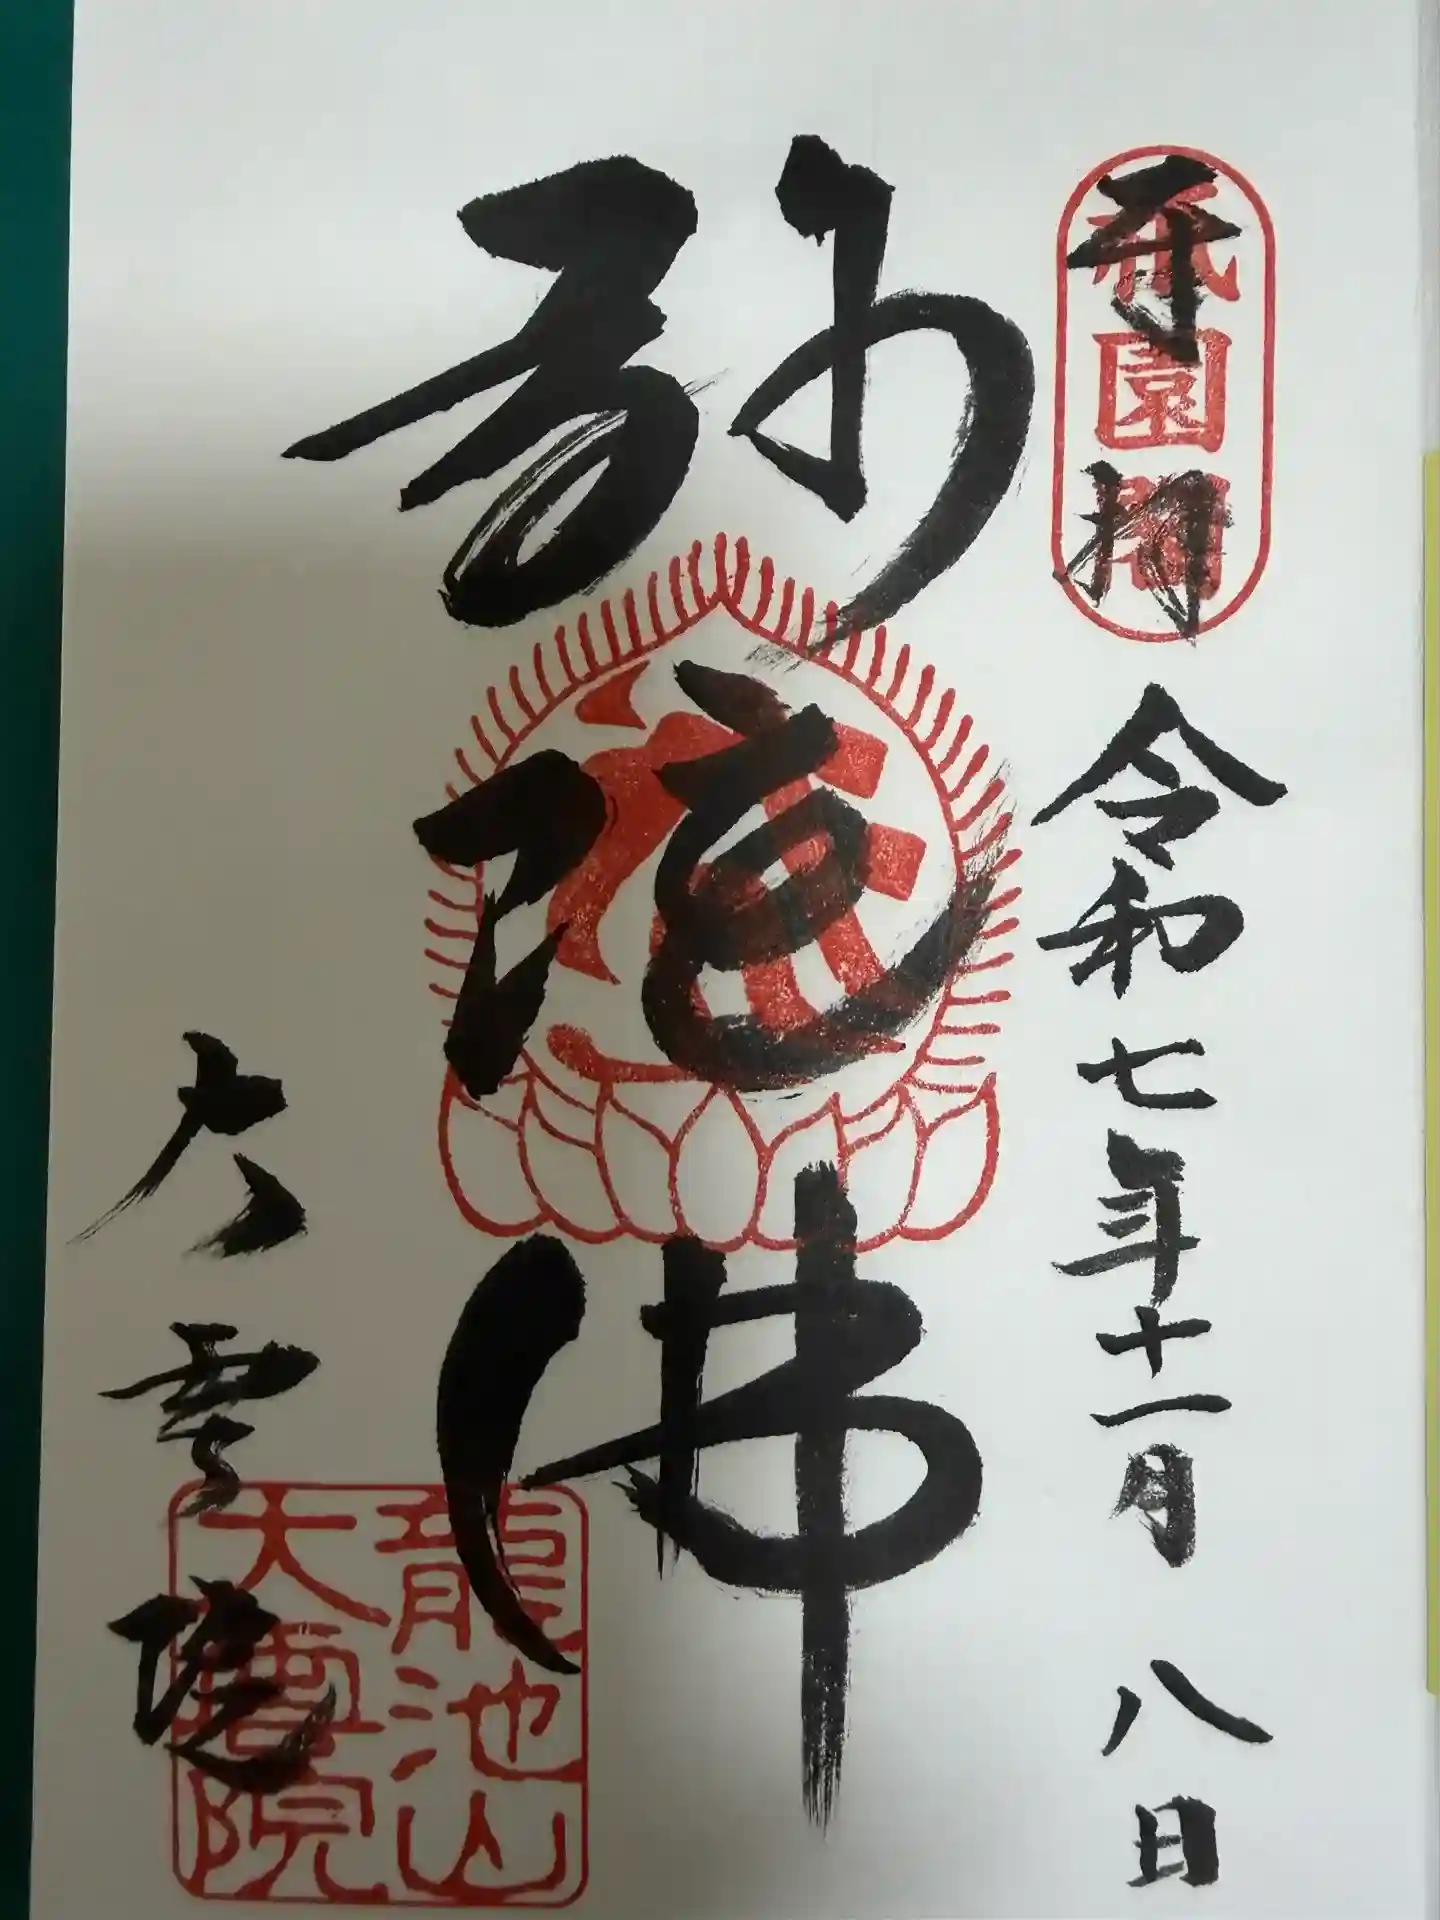 奉拝
祇園閣
令和七年十一月 八日
弥陀佛
大雲院
龍池山
大雲院